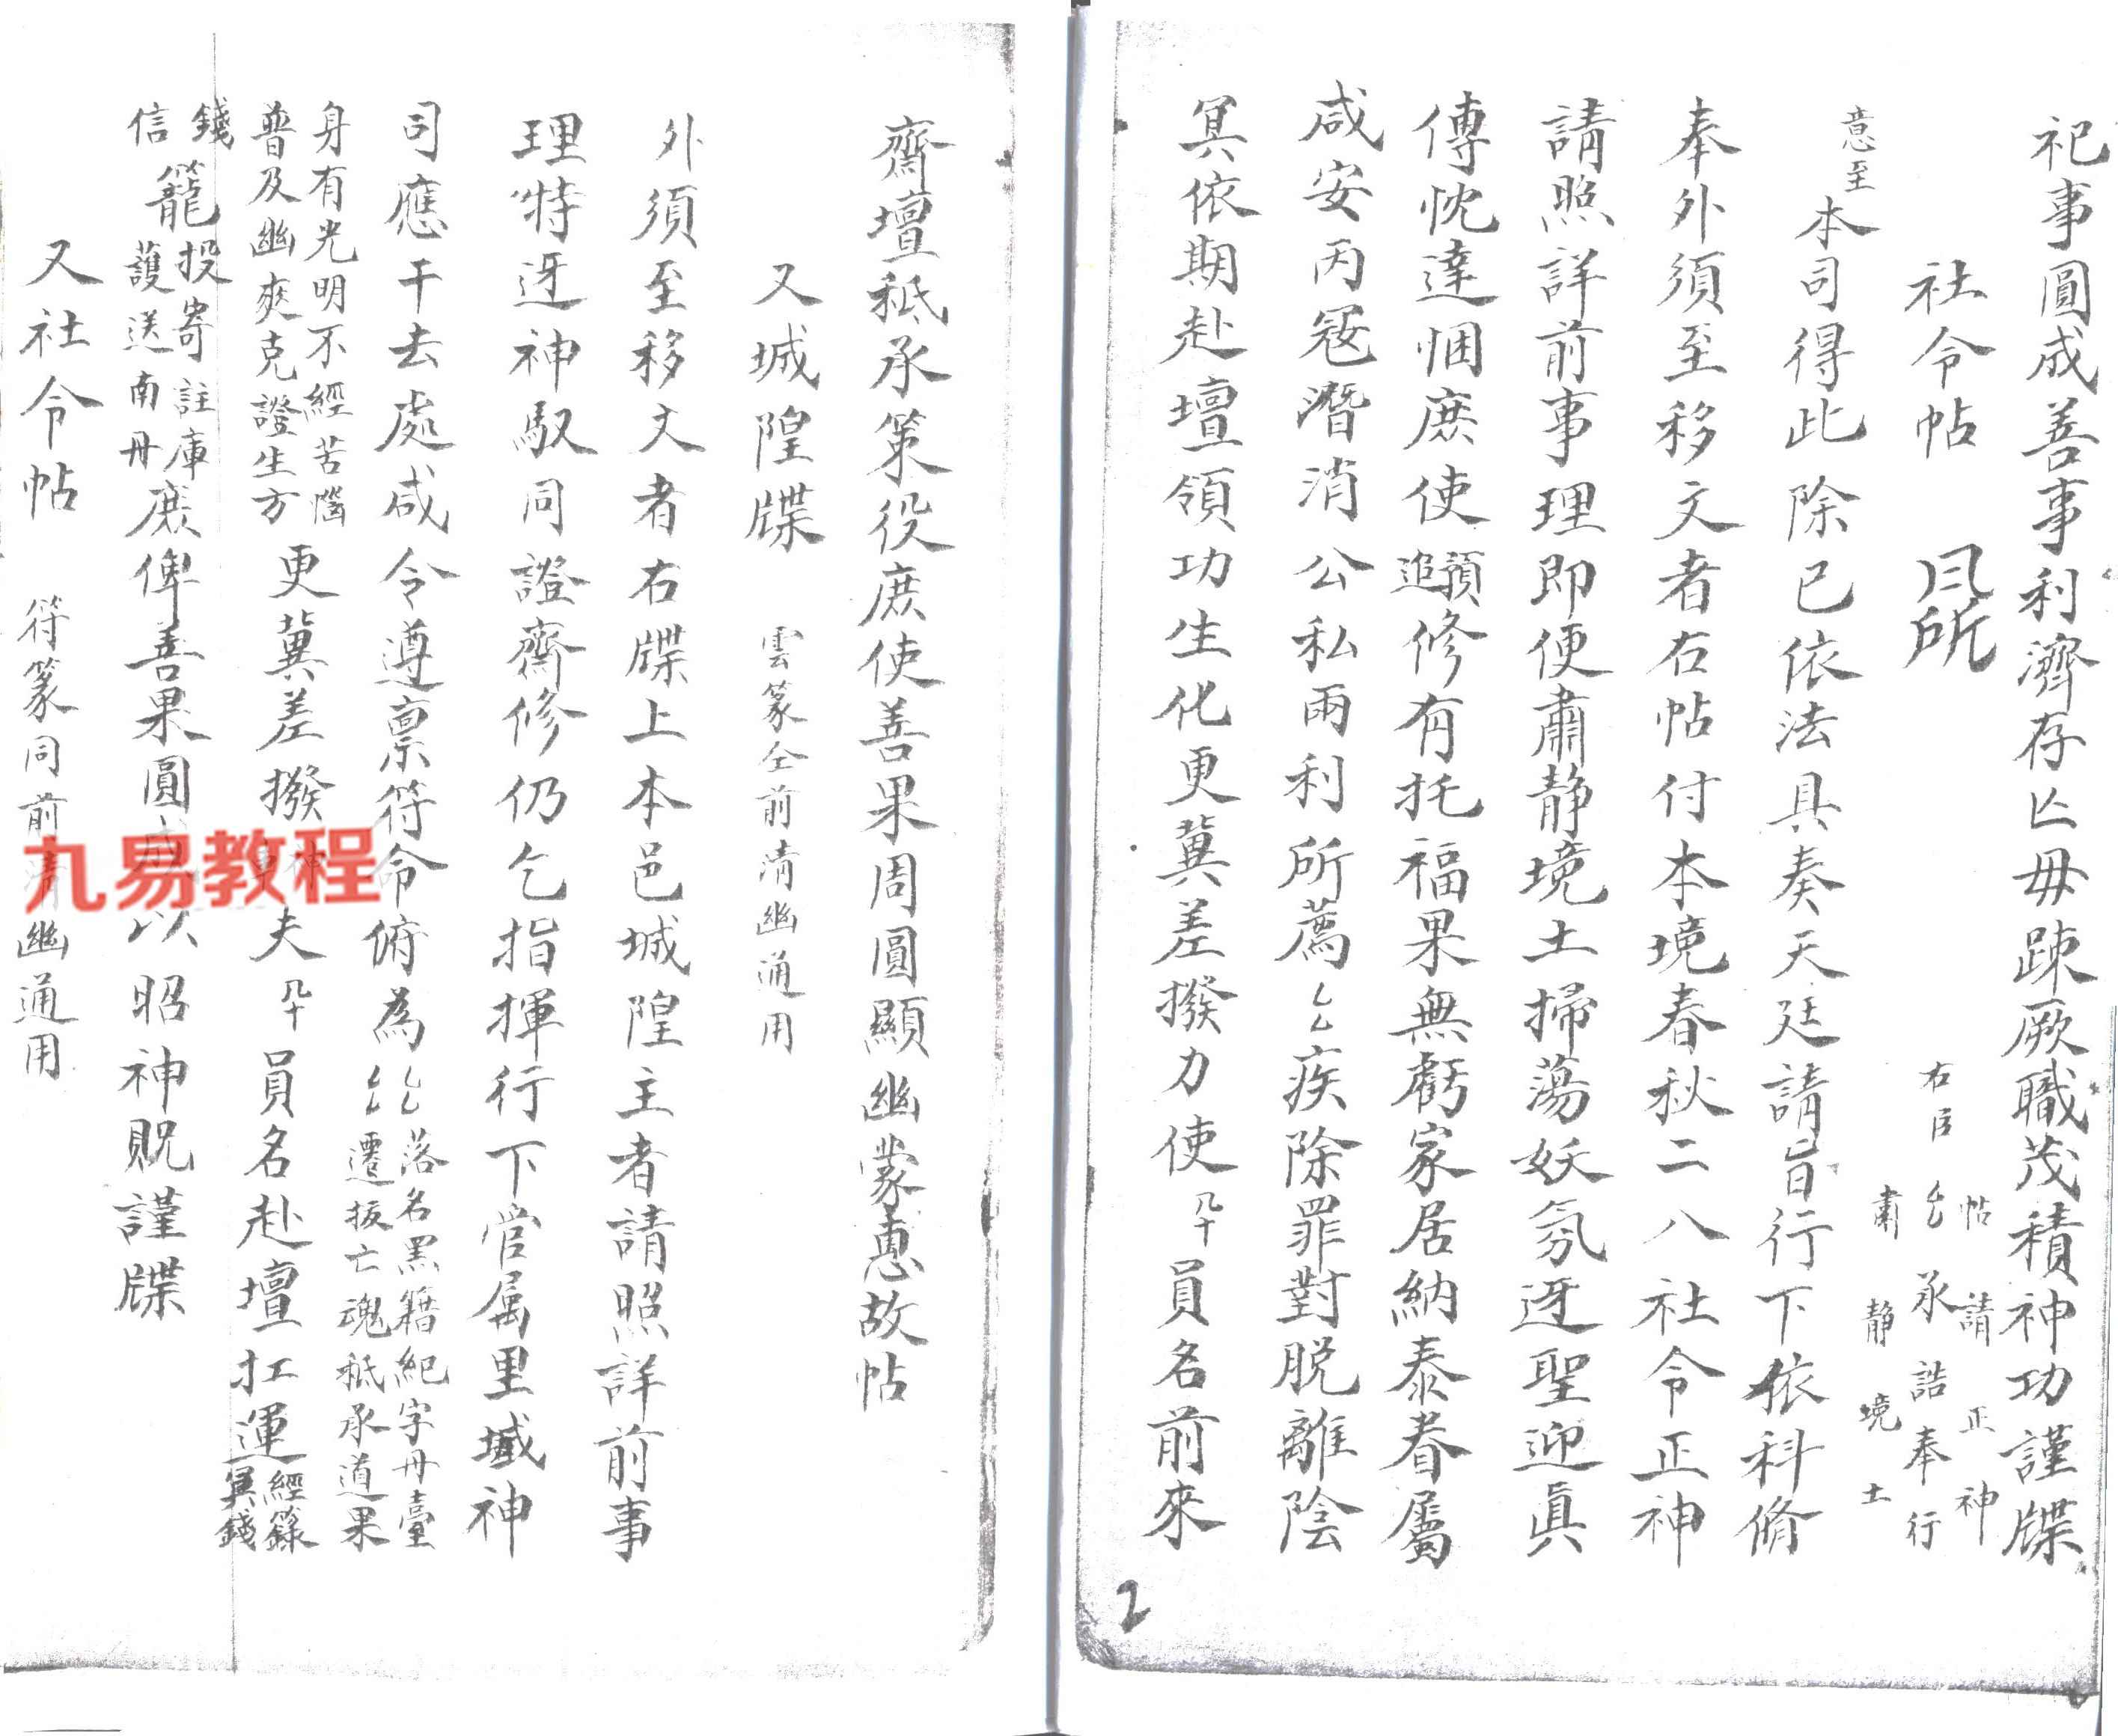 祀事圓成善事利濟存亡毋踈厥職茂積神功謹牒
社令帖
右臣 厶 承誥奉行
帖請正神
肅靜境土
意至
本司得此除已依法具奏天廷請旨行下依科脩
奉外須至移文者右帖付本境春秋二八社令正神
請照詳前事理即便肅靜境土掃蕩妖氛迓聖迎眞
傳忱達悃庶使預追修有托福果無虧家居納泰眷屬
咸安丙冦潛消公私兩利所薦厶厶疾除罪對脱離陰
冥依期赴壇領功生化更冀差撥力使几十員名前來
2
齋壇秪承策役庶使善果周圓顯幽蒙恵故帖
又城隍牒 雲篆仝前清幽通用
外須至移文者右牒上本邑城隍主者請照詳前事
理特迓神馭同證齋修仍乞指揮行下管属里域神
司應干去處咸令遵禀符命俯為厶厶落名黑籍紀字丹臺
厶厶遷拔亡魂秪承道果
身有光明不經苦惱
普及幽爽克證生方
更冀差撥夫几十員名赴壇扛運經籙
冥錢
錢籠投寄註庫
信籠護送南丹
庶俾善果圓成以昭神貺謹牒
又社令帖 符篆同前清幽通用
九易教程